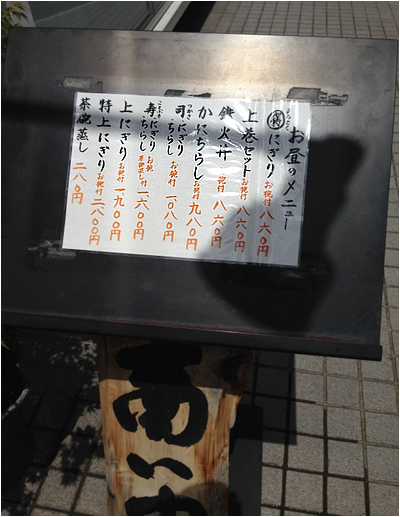 お昼のメニュー
にぎり お椀付 八六〇円
上巻セット お椀付 八六〇円
鉄火丼 お椀付 八六〇円
かにちらし お椀付 九八〇円
つかさ
司 にぎり ちらし お椀付 一、〇八〇円
ことぶき
寿 にぎり ちらし お椀 茶碗蒸し付 一、六〇〇円
上にぎり お椀付 一、九〇〇円
特上にぎり お椀付 二、八〇〇円
茶碗蒸し 二八〇円